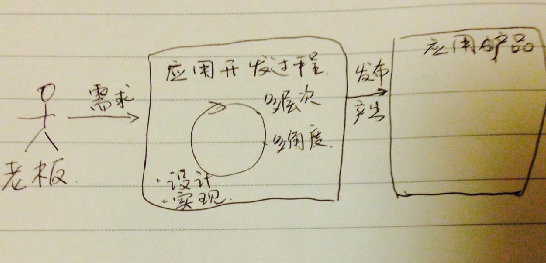 老板
需求
应用开发过程
多层次
多角度
·设计
·实现
发布
产出
应用与产品